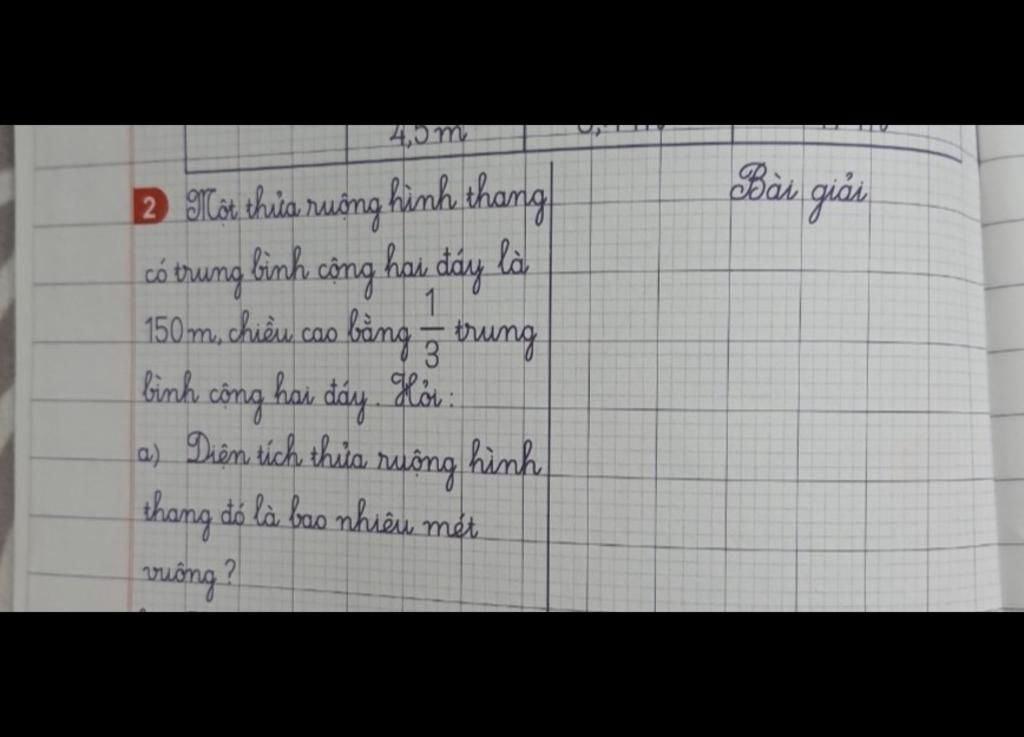 4,5m
2 Một thửa ruộng hình thang
có trung bình cộng hai đáy là
150m, chiều cao bằng 1/3 trung
bình cộng hai đáy. Hỏi:
a) Diện tích thửa ruộng hình
thang đó là bao nhiêu mét
vuông?
Bài giải